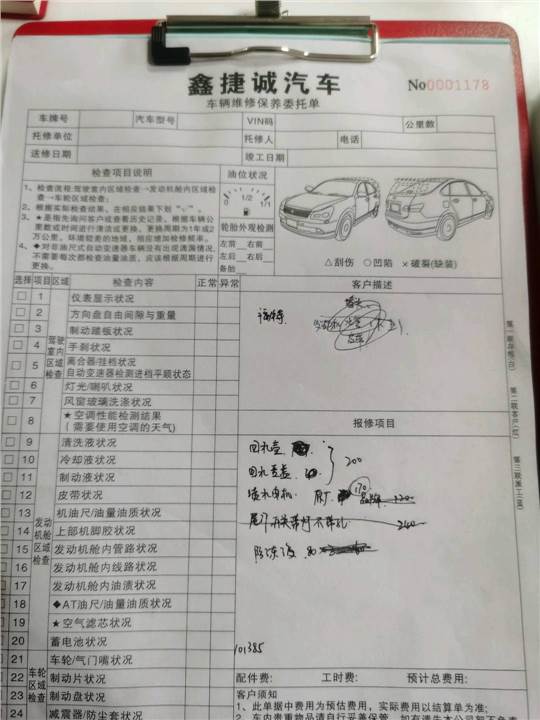 鑫捷诚汽车
No0001178
车辆维修保养委托单
车牌号 汽车型号 VIN码 公里数
托修单位 托修人 电话
送修日期 竣工日期
检查项目说明 油位状况
1、检查流程:驾驶室内区域检查→发动机舱内区域检查→车轮区域检查;
2、根据实际检查结果、在相应结果下划"√"。
3、★是指先询问客户或查看历史记录。根据车辆公里数或时间进行清洁或更换。更换周期为1年或2万公里。环境较差的地域，相应增加检修频率。
4、◆对非油尺式自动变速器车辆没有出现渗漏情况，不需要每次都检查油量油质，应该根据周期进行更换。
0 1/2
轮胎外观检测
左前 右前
左后 右后
备胎
△刮伤 ○凹陷 ×破裂(缺装)
选择 项目 区域 检查内容 正常 异常
客户描述
驾驶室内区域检查
1 仪表显示状况
2 方向盘自由间隙与重量
3 制动踏板状况
4 手刹状况
5 离合器/挂档状况
自动变速器检测进档平顺状态
6 灯光/喇叭状况
7 风窗玻璃洗涤状况
8 ★空调性能检测结果
(需要使用空调的天气)
福特
报修项目
发动机舱区域检查
9 清洗液状况
10 冷却液状况
11 制动液状况
12 皮带状况
13 机油油尺/油量油质状况
14 上部机脚胶状况
15 发动机舱内管路状况
16 发动机舱内线路状况
17 发动机舱内油渍状况
18 ◆AT油尺/油量油质状况
19 ★空气滤芯状况
20 蓄电池状况
200
170
220
240
防冻液 80
101385
车轮区域检查
21 车轮/气门嘴状况
22 制动片状况
23 制动盘状况
24 减震器/防尘套状况
配件费: 工时费: 预计总费用:
客户须知
1、此单据中费用为预估费用，实际费用以结算单为准;
第一联存根(白)
第二联客户(红)
第三联施工(蓝)